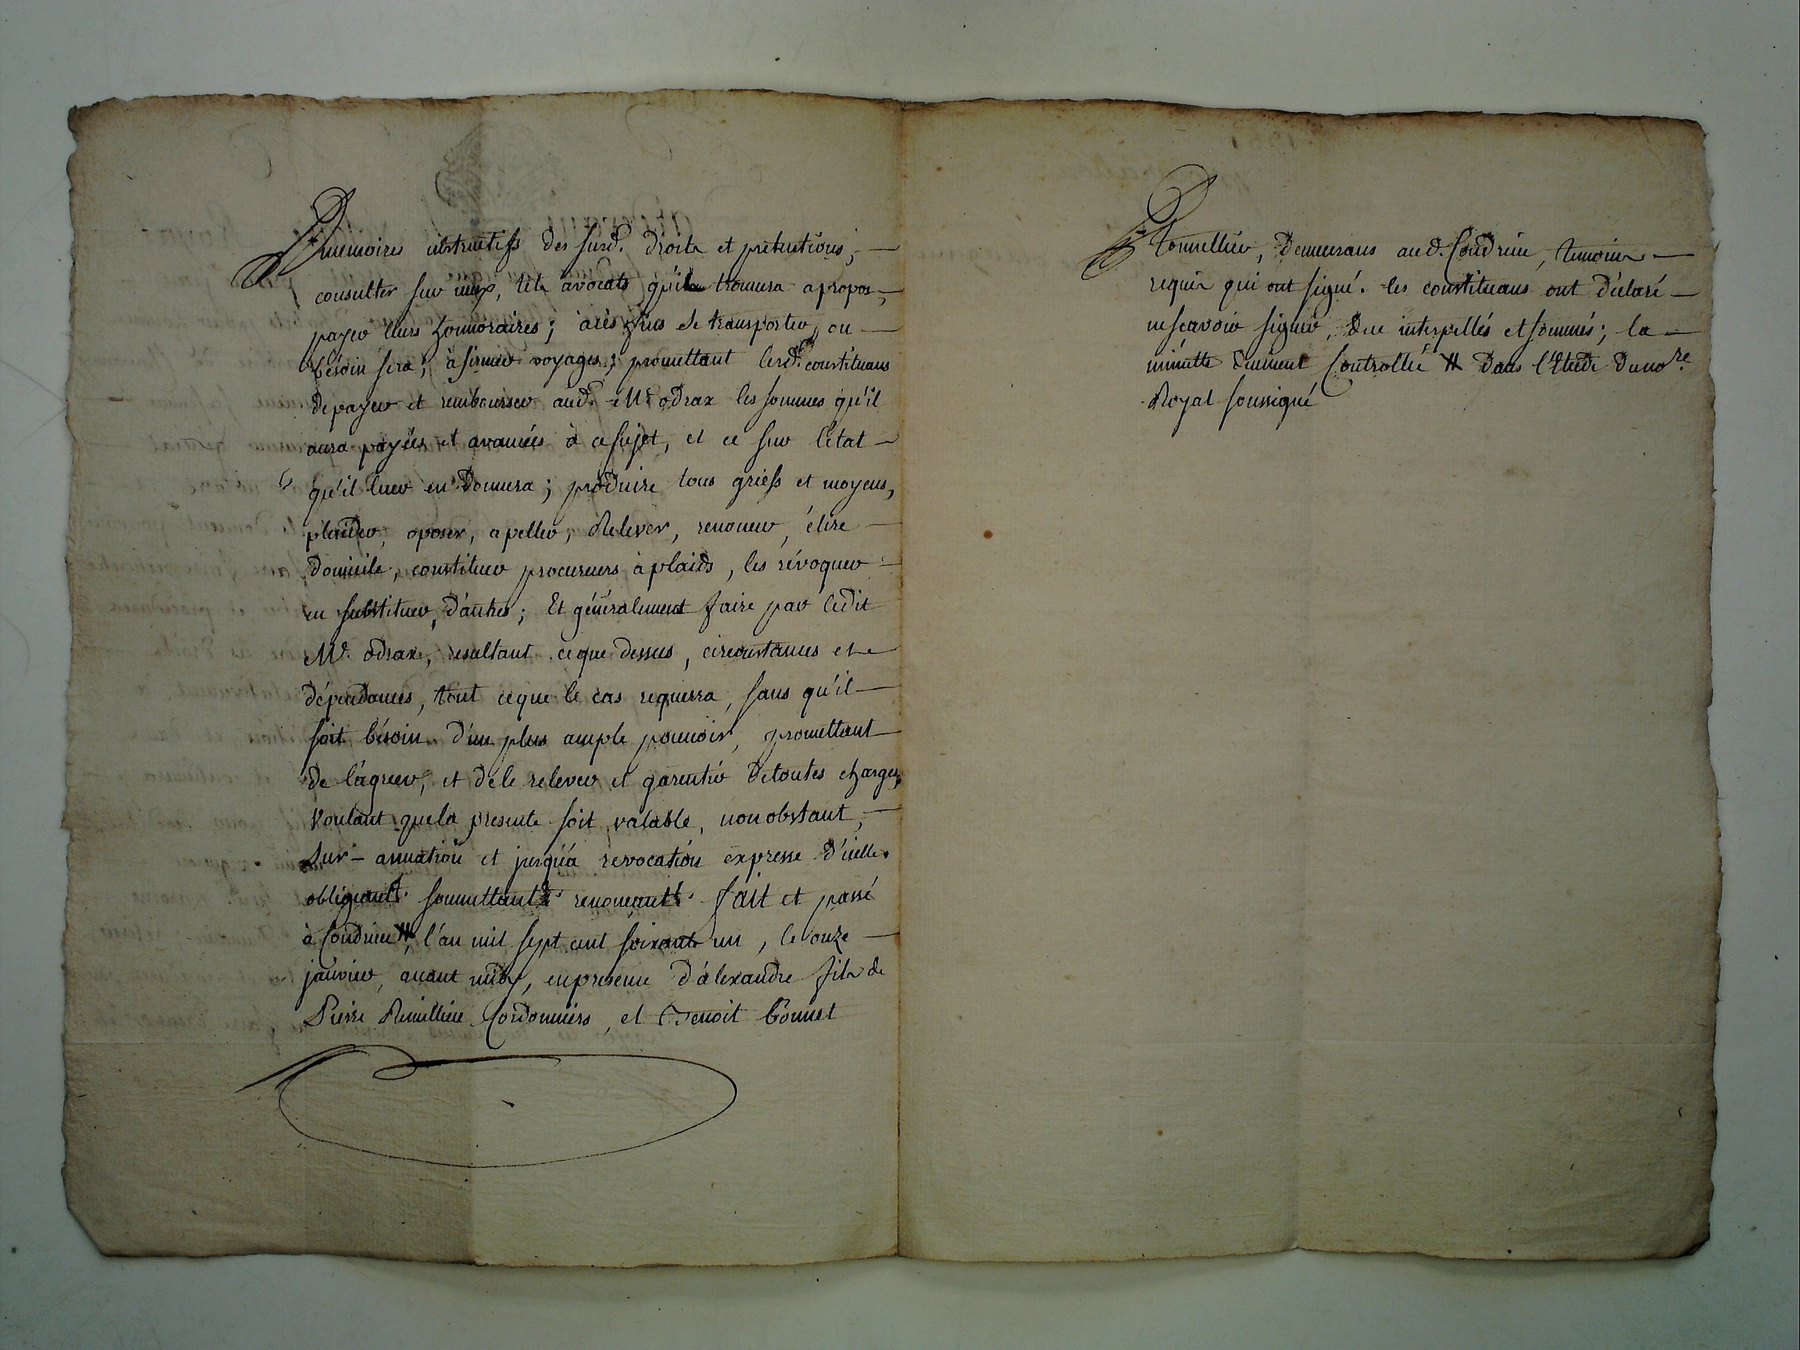 memoires instructifs des susd. droits et prétentions, —
consulter sur iceux, tels avocats qu'il trouvera apropos, —
payer leurs honnoraires; à cès fins se transporter, ou —
bésoin sera; afirmer voyages; promettant lesd. constituans
de payer et rembourser aud. Me odrax les sommes qu'il
aura payées et avancées à ce sujet, et ce sur l'état —
qu'il leur en donnera; produire tous griefs et moyens,
plaider, oposer, apeller, Relever, renoncer, élire —
domicile, constituer procureurs à plaids, les révoquer —
en substituer d'autres; Et généralement faire par ledit
Me. odrax, resultant ce que dessus, circonstances et —
dépendances, tout ce que le cas requerra, sans qu'il —
soit bésoin d'un plus ample pouvoir, promettant
de l'agréer, et de le relever et garentir de toutes charges,
voulant que la presente soit valable, nonobstant, —
sur-annation et jusqu'a revocation expresse d'icelle.
obligeant. soumettant. renonceant. fait et passé
à Condrieu, l'an mil sept cent soixante un, le onze —
janvier, avant midy, en presence d'alexandre fils de
Pierre Remillieu Cordonniers, et Benoit bonnet
tonnellier, demeurans aud. Condrieu, temoins —
requis qui ont signé. les constituans ont déclaré —
ne scavoir signer, de ce interpellés et sommés; la —
minutte duement Controllée dans l'Etude du nore.
Royal soussigné